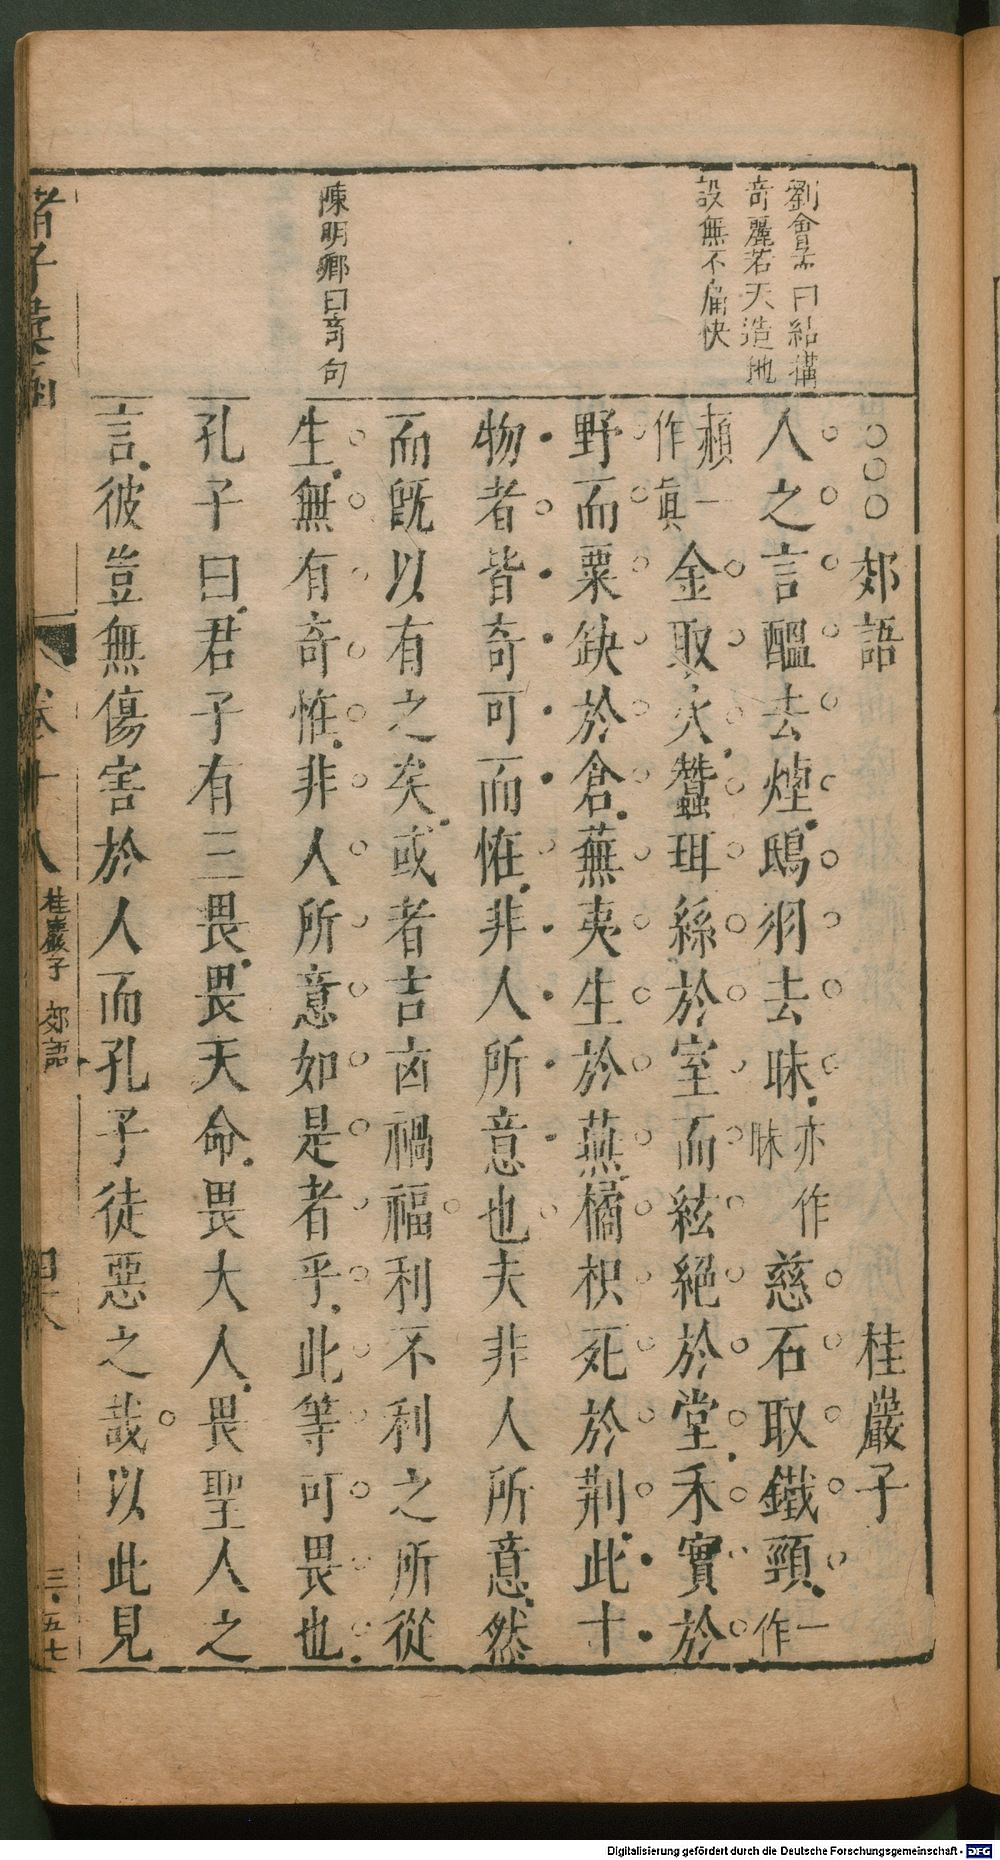 劉會孟曰結搆
奇麗若天造地
設無不痛快
陳明卿曰奇句
○○○郊語 桂巖子
人之言醞去煙鴟羽去昧亦作眛慈石取鐵頸一作
頳一作眞金取火蠶珥絲於室而絃絕於堂禾實於
野而粟缺於倉蕪夷生於燕橘枳死於荆此十
物者皆奇可而恠非人所意也夫非人所意然
而旣以有之矣或者吉凶禍福利不利之所從
生無有奇恠非人所意如是者乎此等可畏也
孔子曰君子有三畏畏天命畏大人畏聖人之
言彼豈無傷害於人而孔子徒惡之哉以此見
諸子彙函
卷十八
桂巖子 郊語
三五七
Digitalisierung gefördert durch die Deutsche Forschungsgemeinschaft - DFG